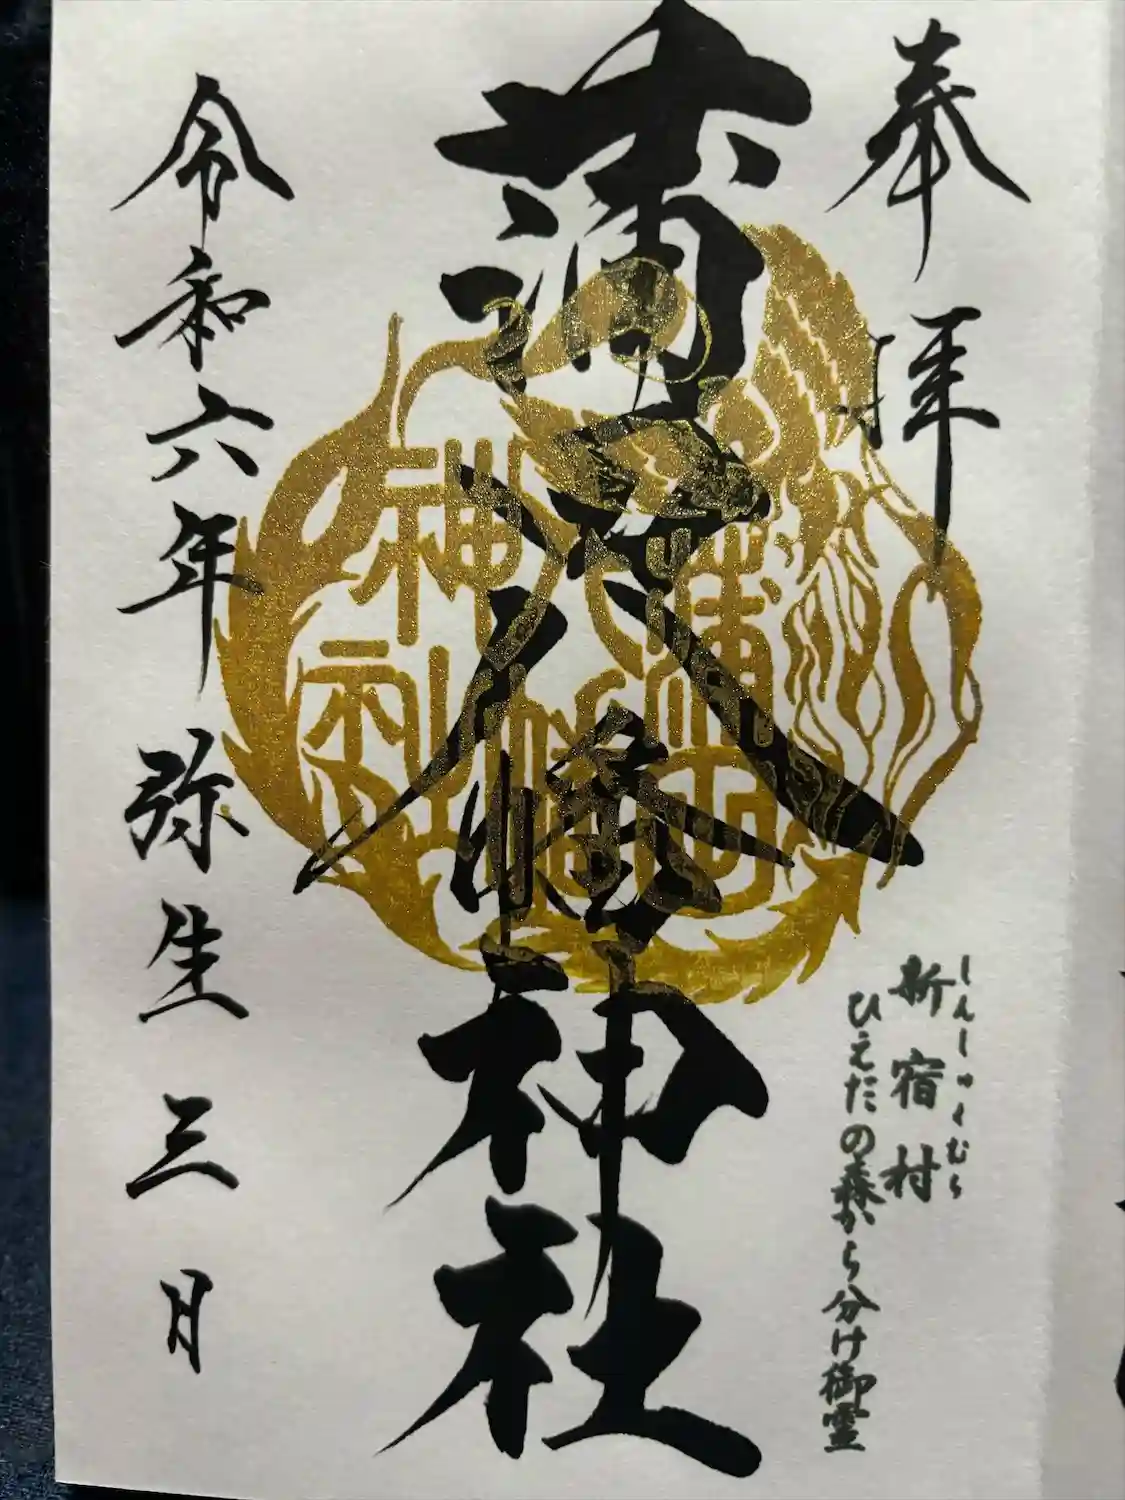 奉拝
しんしゅくむら
新宿村
ひえだの森から分け御霊
蒲田八幡神社
蒲田
八幡
神社
令和六年弥生三月